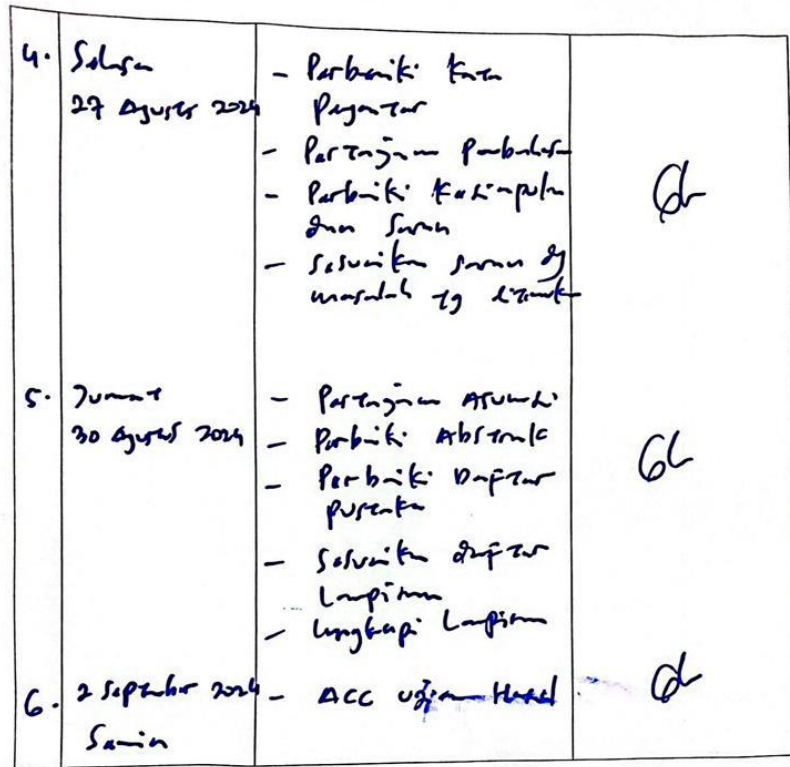 4. Selasa
27 Agustus 2024
- Perbaiki Kata
Pengantar
- Pertajam Pembahasan
- Perbaiki Kesimpulan
dan Saran
- Sesuaikan saran dg
masalah yg
5. Jumat
30 Agustus 2024
- Pertajam Asumsi
- Perbaiki Abstrak
- Perbaiki Daftar
pustaka
- Sesuaikan daftar
Lampiran
- Lengkapi Lampiran
6. 2 September 2024
Senin
- ACC Ujian Hasil